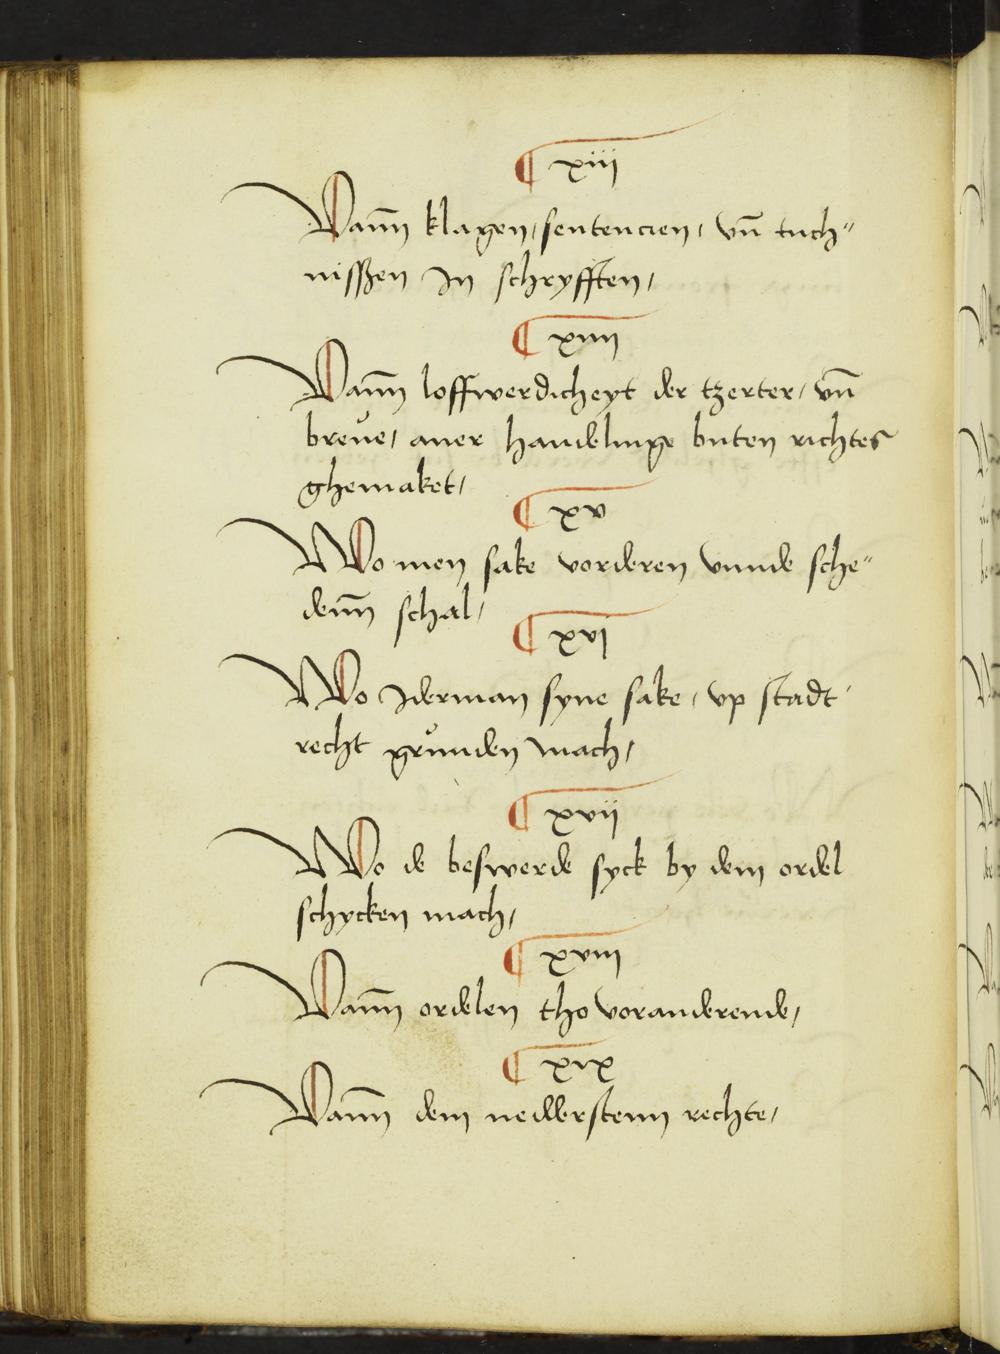 ¶ xiii
Vann̄ klagen, sentencien, vn̄ tuch"
nisszen In schryfften,
¶ xiiii
Vann̄ loffwerdicheyt der tzerter, vn̄
breue, auer handelinge buten richtes
ghemaket,
¶ xv
Wo men sake vorderen vnnde sche"
denn̄ schal,
¶ xvi
Wo Iderman syne sake, vp stadt
recht grůnden mach,
¶ xvii
Wo de beswerde syck by dem ordel
schycken mach,
¶ xviii
Vann̄ ordelen tho voranderende,
¶ xix
Vann̄ dem nedderstenn rechte,